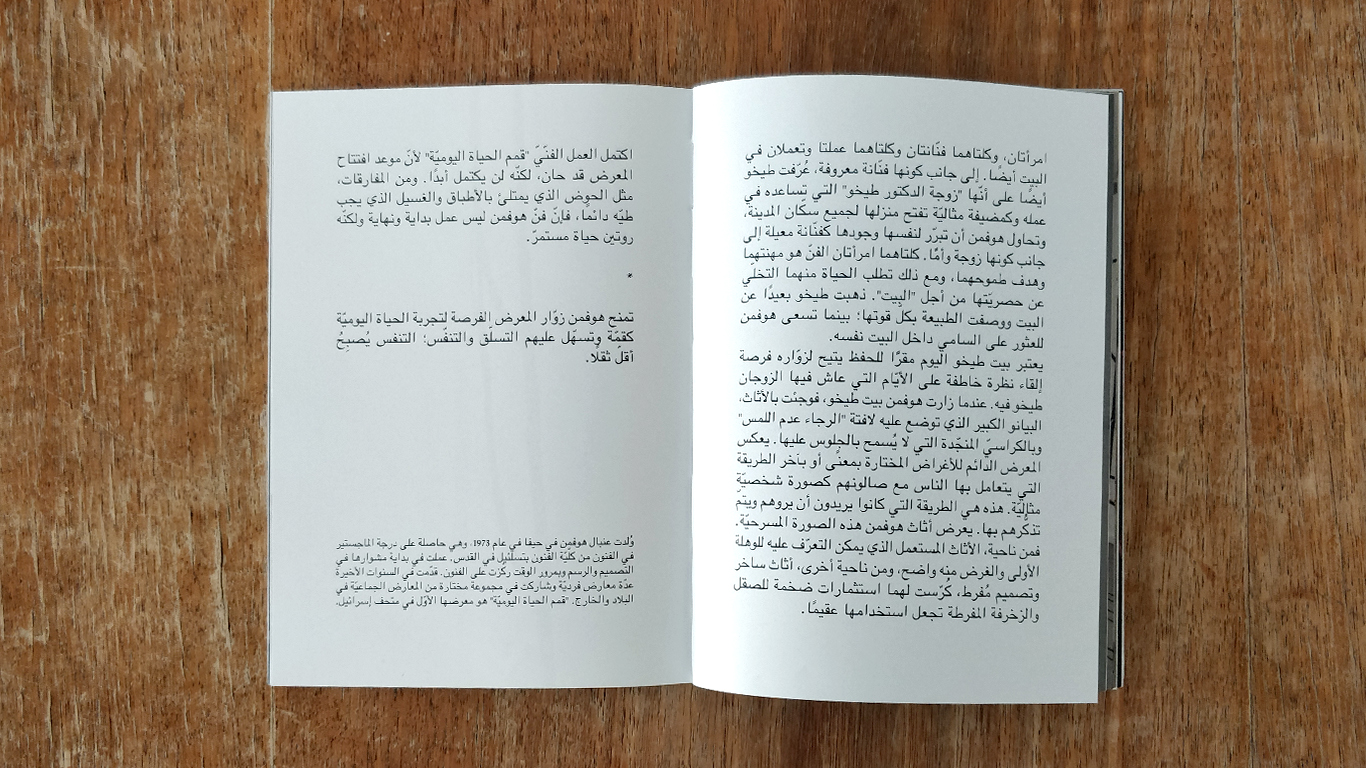 امرأتان، وكلتاهما فنّانتان وكلتاهما عملتا وتعملان في
البيت أيضًا. إلى جانب كونها فنّانة معروفة، عُرّفت طيخو
أيضًا على أنّها "زوجة الدكتور طيخو" التي تساعده في
عمله وكمضيفة مثاليّة تفتح منزلها لجميع سكّان المدينة،
وتحاول هوفمن أن تبرّر لنفسها وجودها كفنّانة معيلة إلى
جانب كونها زوجة وأمًّا. كلتاهما امرأتان الفنّ هو مهنتهما
وهدف طموحهما، ومع ذلك تطلب الحياة منهما التخلّي
عن حصريّتها من أجل "البيت". ذهبت طيخو بعيدًا عن
البيت ووصفت الطبيعة بكلّ قوتها؛ بينما تسعى هوفمن
للعثور على السامي داخل البيت نفسه.
يعتبر بيت طيخو اليوم مقرًّا للحفظ يتيح لزوّاره فرصة
إلقاء نظرة خاطفة على الأيّام التي عاش فيها الزوجان
طيخو فيه. عندما زارت هوفمن بيت طيخو، فوجئت بالأثاث،
البيانو الكبير الذي توضع عليه لافتة "الرجاء عدم اللمس"
وبالكراسيّ المنجّدة التي لا يُسمح بالجلوس عليها. يعكس
المعرض الدائم للأغراض المختارة بمعنًى أو بآخر الطريقة
التي يتعامل بها الناس مع صالونهم كصورة شخصيّة
مثاليّة. هذه هي الطريقة التي كانوا يريدون أن يروهم ويتمّ
تذكّرهم بها. يعرض أثاث هوفمن هذه الصورة المسرحيّة.
فمن ناحية، الأثاث المستعمل الذي يمكن التعرّف عليه للوهلة
الأولى والغرض منه واضح، ومن ناحية أخرى، أثاث ساخر
وتصميم مُفرط، كُرّست لهما استثمارات ضخمة للصقل
والزخرفة المفرطة تجعل استخدامها عقيمًا.
اكتمل العمل الفنّيّ "قمم الحياة اليوميّة" لأنّ موعد افتتاح
المعرض قد حان، لكنّه لن يكتمل أبدًا. ومن المفارقات،
مثل الحوض الذي يمتلئ بالأطباق والغسيل الذي يجب
طيّه دائما، فإنّ فنّ هوفمن ليس عمل بداية ونهاية ولكنّه
روتين حياة مستمرّ.
*
تمنح هوفمن زوّار المعرض الفرصة لتجربة الحياة اليوميّة
كقمّة وتسهّل عليهم التسلّق والتنفّس؛ التنفس يُصبحُ
أقلّ ثقلًا.
وُلدت عنبال هوفمن في حيفا في عام 1973، وهي حاصلة على درجة الماجستير
في الفنون من كليّة الفنون بتسلئيل في القدس. عملت في بداية مشوارها في
التصميم والرسم وبمرور الوقت ركّزت على الفنون. قدّمت في السنوات الأخيرة
عدّة معارض فرديّة وشاركت في مجموعة مختارة من المعارض الجماعيّة في
البلاد والخارج. "قمم الحياة اليوميّة" هو معرضها الأوّل في متحف إسرائيل.